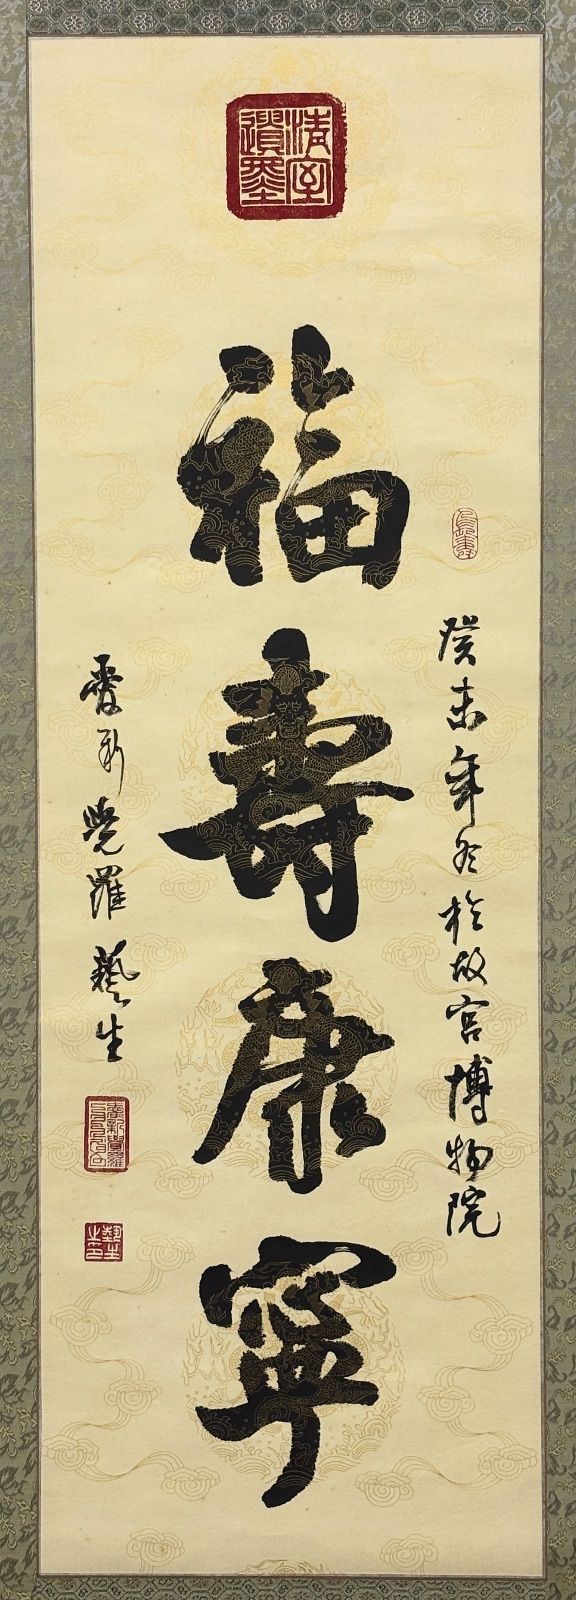 清室
遺墨
福壽康寧
癸未年冬於故宮博物院
愛新覺羅 藝生
愛新覺羅
藝生
之印